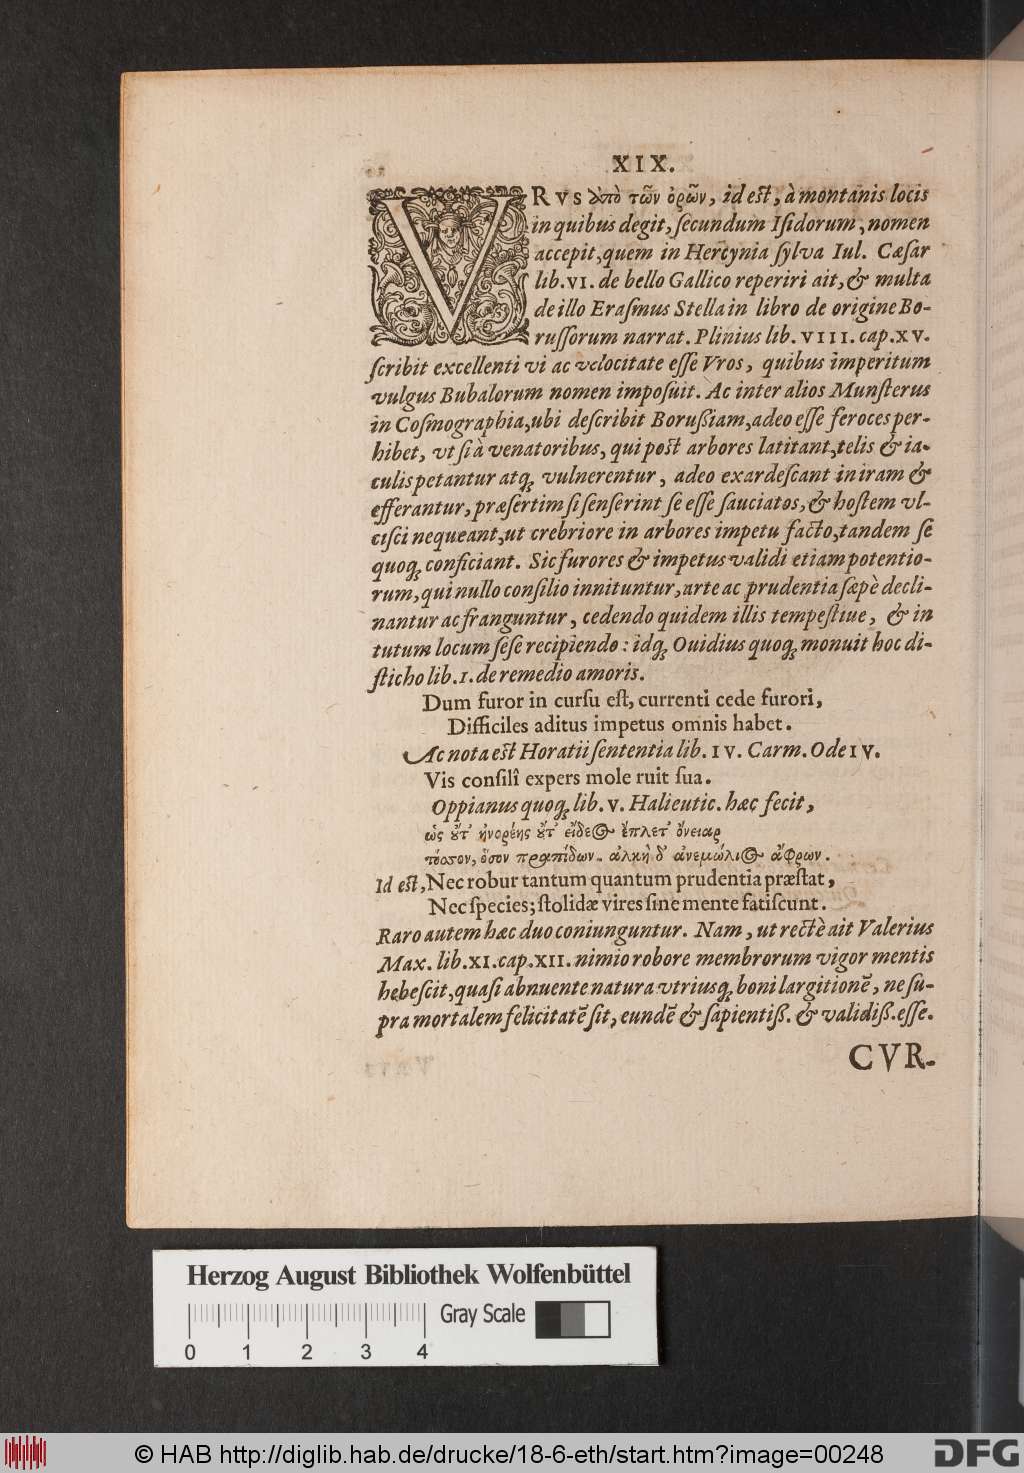 XIX.
VRVS ἀπὸ τῶν ὀρῶν, id est, à montanis locis
in quibus degit, ſecundum Iſidorum, nomen
accepit, quem in Hercynia ſylva Iul. Cæſar
lib. VI. de bello Gallico reperiri ait, & multa
de illo Eraſmus Stella in libro de origine Bo-
ruſſorum narrat. Plinius lib. VIII. cap. XV.
ſcribit excellenti vi ac velocitate eſſe Vros, quibus imperitum
vulgus Bubalorum nomen impoſuit. Ac inter alios Munſterus
in Coſmographia, ubi deſcribit Borußiam, adeo eſſe feroces per-
hibet, vt ſi à venatoribus, qui post arbores latitant, telis & ia-
culis petantur atq; vulnerentur, adeo exardeſcant in iram &
efferantur, præſertim ſi ſenſerint ſe eſſe ſauciatos, & hoſtem vl-
ciſci nequeant, ut crebriore in arbores impetu facto, tandem ſe
quoq; conficiant. Sic furores & impetus validi etiam potentio-
rum, qui nullo conſilio innituntur, arte ac prudentia ſæpè decli-
nantur ac franguntur, cedendo quidem illis tempeſtiue, & in
tutum locum ſeſe recipiendo: idq; Ouidius quoq; monuit hoc di-
ſticho lib. 1. de remedio amoris.
Dum furor in curſu eſt, currenti cede furori,
Difficiles aditus impetus omnis habet.
Ac nota est Horatii ſententia lib. IV. Carm. Ode IV.
Vis conſilî expers mole ruit ſua.
Oppianus quoq; lib. V. Halieutic. hæc fecit,
ὡς οὔτ' ἠνορέης οὔτ' εἴδεος ἔπλετ' ὄνειαρ
τόσσον, ὅσον πραπίδων. ἀλκὴ δ' ἀνεμώλιος ἄφρων.
Id est, Nec robur tantum quantum prudentia præſtat,
Nec ſpecies; ſtolidæ vires ſine mente fatiſcunt.
Raro autem hæc duo coniunguntur. Nam, ut rectè ait Valerius
Max. lib. XI. cap. XII. nimio robore membrorum vigor mentis
hebeſcit, quaſi abnuente natura vtriusq; boni largitionē, ne ſu-
pra mortalem felicitatē ſit, eundē & ſapientiß. & validiß. eſſe.
CVR-
Herzog August Bibliothek Wolfenbüttel
Gray Scale
0 1 2 3 4
© HAB http://diglib.hab.de/drucke/18-6-eth/start.htm?image=00248
DFG